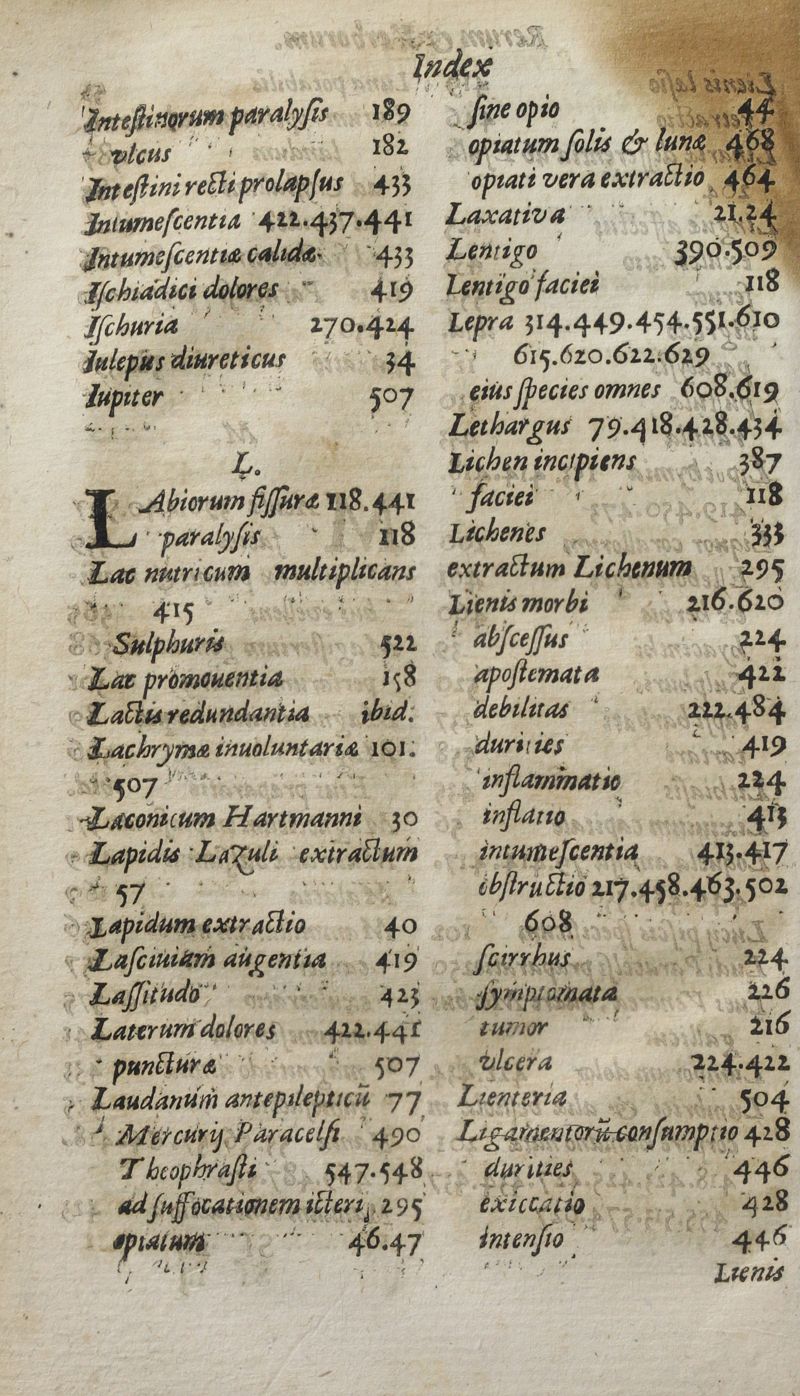 Index
Intestinorum paralysis 189
vlcus 182
Intestini recti prolapsus 433
Intumescentia 422.437.441
Intumescentiæ calidæ 433
Ischiadici dolores 419
Ischuria 270.424
Iulepus diureticus 34
Iupiter 507
L.
LAbiorum fissuræ 118.441
paralysis 118
Lac nutricum multiplicans
415
Sulphuris 522
Lac promouentia 158
Lactis redundantia ibid.
Lachrymæ inuoluntariæ 101.
507
Laconicum Hartmanni 30
Lapidis Lazuli extractum
57
Lapidum extractio 40
Lasciuiam augentia 419
Lassitudo 423
Laterum dolores 422.441
puncturæ 507
Laudanum antepilepticū 77
Mercurij Paracelsi 490
Theophrasti 547.548
ad suffocationem icteri, 295
opiatum 46.47
sine opio 44
opiatum solis & lunæ 468
opiati vera extractio 464
Laxativa 21.24
Lentigo 390.509
Lentigo faciei 118
Lepra 314.449.454.551.610
615.620.622.629
eius species omnes 608.619
Lethargus 79.418.428.434
Lichen incipiens 387
faciei 118
Lichenes 333
extractum Lichenum 295
Lienis morbi 216.620
abscessus 224
apostemata 422
debilitas 222.484
durities 419
inflammatio 224
inflatio 413
intumescentia 413.417
obstructio 217.458.463.502
608
scirrhus 224
symptomata 226
tumor 216
vlcera 224.422
Lienteria 504
Ligamentorū consumptio 428
durities 446
exiccatio 428
intensio 446
Lienis